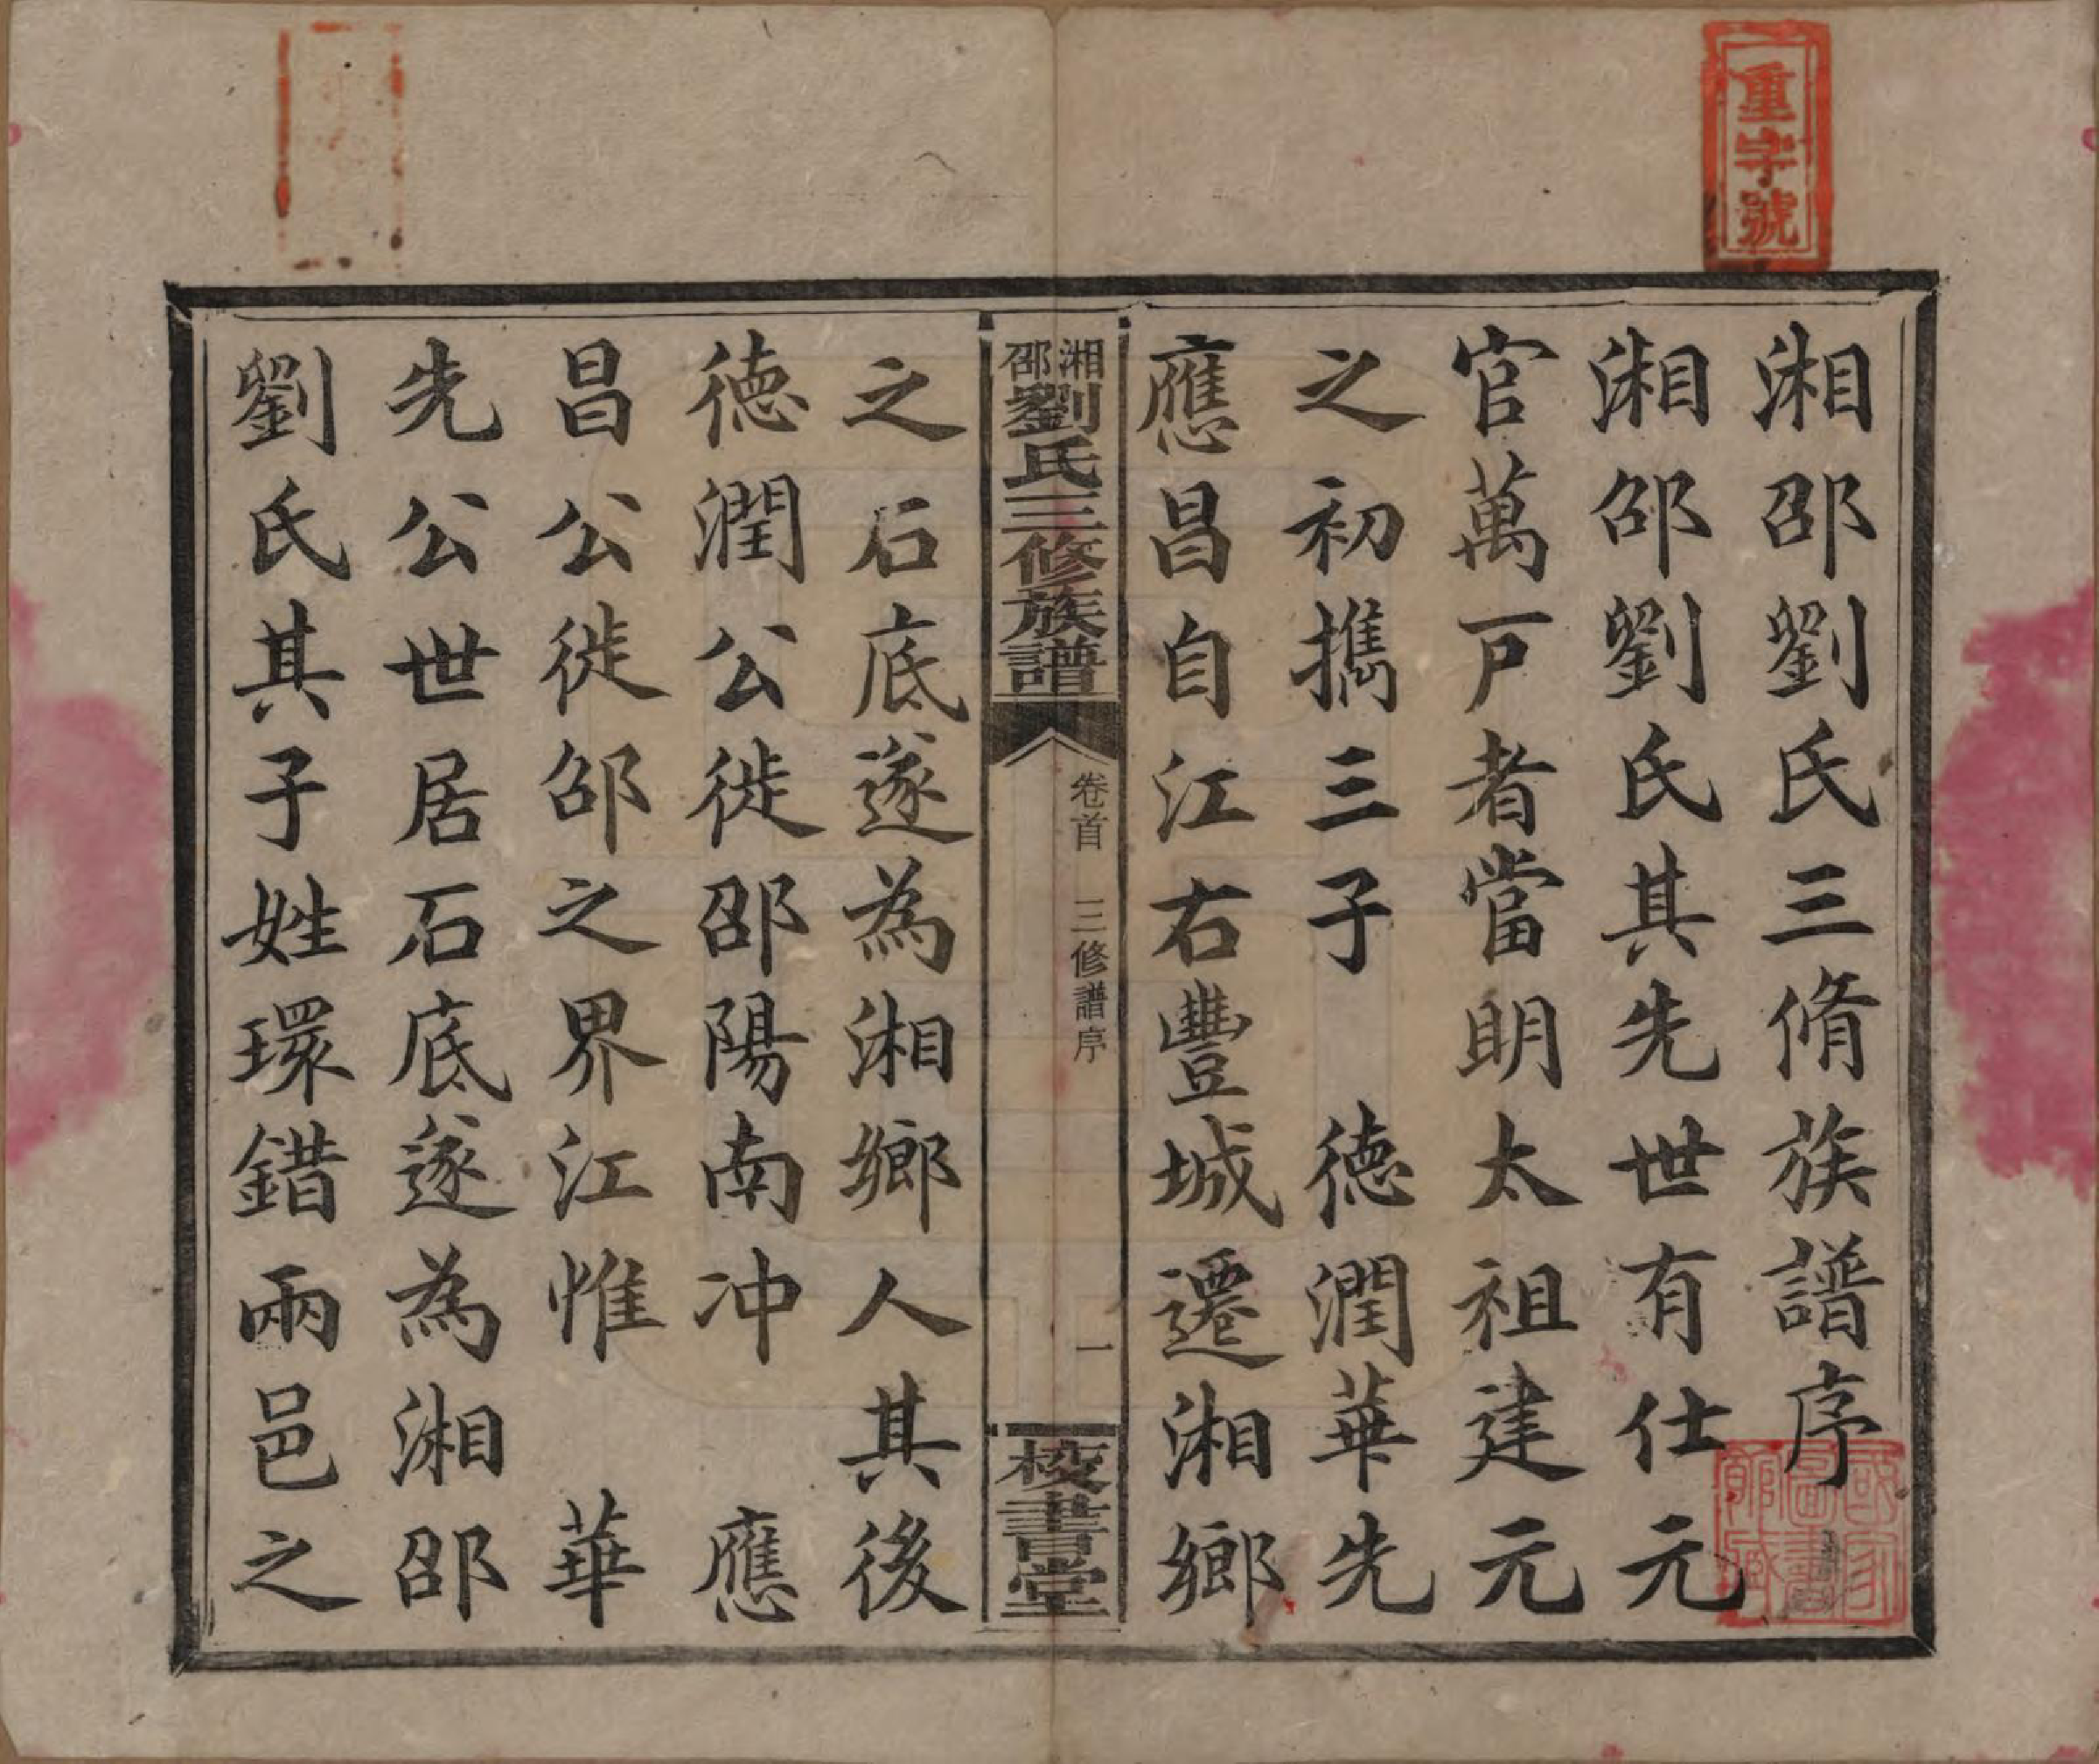 重字號
湘邵劉氏三脩族譜序
湘邵劉氏其先世有仕元
官萬戸者當明太祖建元
之初攜三子　德潤華先
應昌自江右豐城遷湘鄉
湘邵劉氏三修族譜
卷首　三修譜序
一
校書堂
之石底遂為湘鄉人其後
德潤公徙邵陽南冲　應
昌公徙邵之界江惟　華
先公世居石底遂為湘邵
劉氏其子姓環錯兩邑之
國家圖書館藏